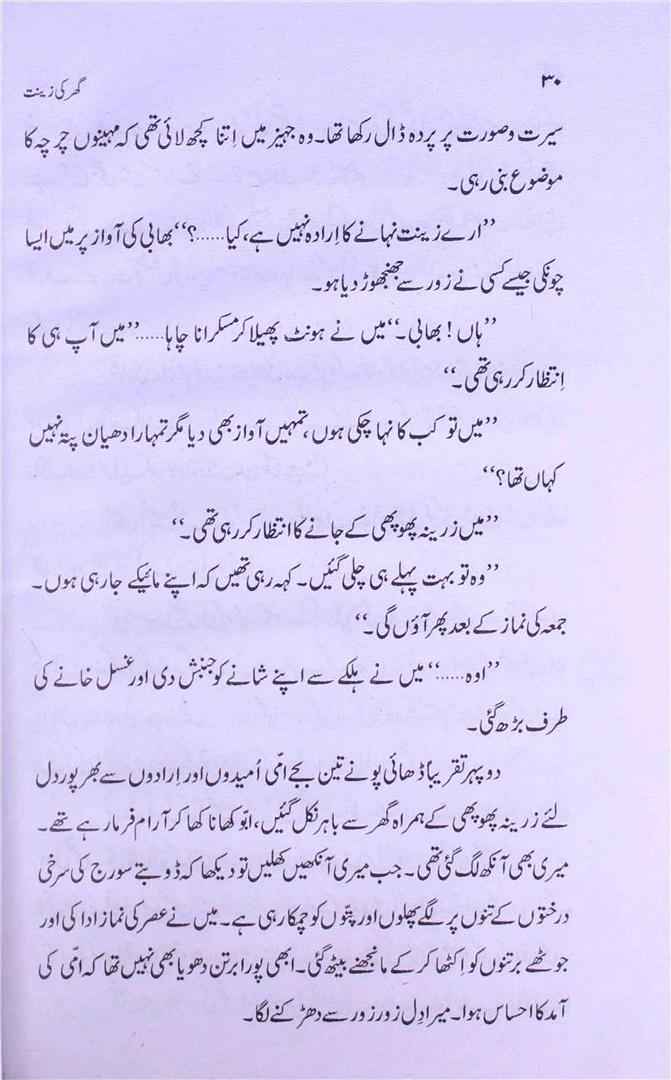 ۳۰
گھر کی زینت
سیرت و صورت پر پردہ ڈال رکھا تھا۔ وہ جہیز میں اِتنا کچھ لائی تھی کہ مہینوں چرچہ کا
موضوع بنی رہی۔
”ارے زینت نہانے کا اِرادہ نہیں ہے، کیا.....؟“ بھابی کی آواز پر میں ایسا
چونکی جیسے کسی نے زور سے جھنجھوڑ دیا ہو۔
”ہاں! بھابی۔“ میں نے ہونٹ پھیلا کر مسکرانا چاہا.....”میں آپ ہی کا
اِنتظار کر رہی تھی۔“
”میں تو کب کا نہا چکی ہوں، تمہیں آواز بھی دیا مگر تمہارا دھیان پتہ نہیں
کہاں تھا؟“
”میں زرینہ پھوپھی کے جانے کا اِنتظار کر رہی تھی۔“
”وہ تو بہت پہلے ہی چلی گئیں۔ کہہ رہی تھیں کہ اپنے مائیکے جا رہی ہوں۔
جمعہ کی نماز کے بعد پھر آؤں گی۔“
”اوہ.....“ میں نے ہلکے سے اپنے شانے کو جنبش دی اور غسل خانے کی
طرف بڑھ گئی۔
دوپہر تقریباً ڈھائی پونے تین بجے امّی اُمیدوں اور اِرادوں سے بھرپور دل
لئے زرینہ پھوپھی کے ہمراہ گھر سے باہر نکل گئیں، ابّو کھانا کھا کر آرام فرما رہے تھے۔
میری بھی آنکھ لگ گئی تھی۔ جب میری آنکھیں کھلیں تو دیکھا کہ ڈوبتے سورج کی سرخی
درختوں کے تنوں پر لگے پھلوں اور پتوں کو چمکا رہی ہے۔ میں نے عصر کی نماز ادا کی اور
جوٹھے برتنوں کو اِکٹھا کر کے مانجھنے بیٹھ گئی۔ ابھی پورا برتن دھویا بھی نہیں تھا کہ امّی کی
آمد کا احساس ہوا۔ میرا دِل زور زور سے دھڑکنے لگا۔